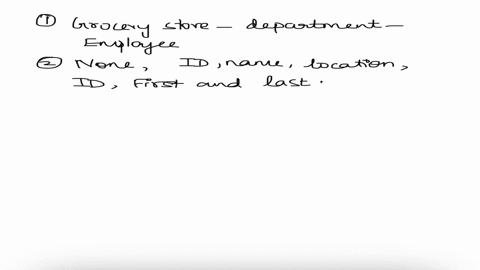 ① Grocery store - department -
Employee
② None, ID, name, location,
ID, First and last.